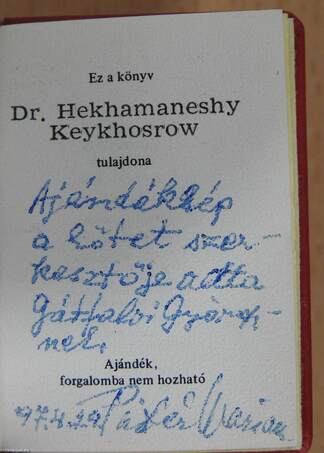 Ez a könyv
Dr. Hekhamaneshy
Keykhosrow
tulajdona
Ajándékkép
a kötet szer-
kesztője adta
Gáttalvi György-
nél.
Ajándék,
forgalomba nem hozható